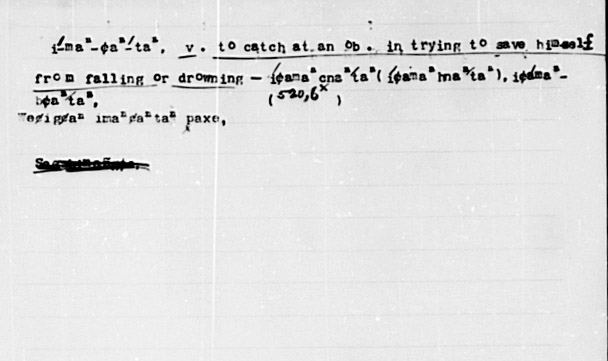 í-maⁿ-¢aⁿ/-taⁿ, v. to catch at an ob., in trying to save himself
from falling or drowning — í¢amaⁿ cnaⁿ´taⁿ( í¢amaⁿ hnaⁿ´taⁿ), i¢ámaⁿ-
b¢aⁿ´taⁿ,
(520,6ˣ)
We¢ig¢aⁿ imaⁿ¢aⁿtaⁿ paxe,